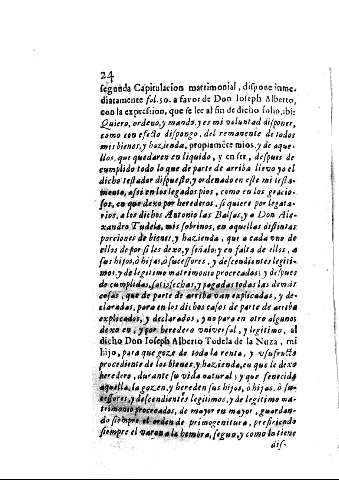 24
segunda Capitulacion matrimonial, dispone inme-
diatamente fol. 50. a favor de Don Ioseph Alberto,
con la expression, que se lee al fin de dicho folio, ibi:
Quiero, ordeno, y mando, y es mi voluntad disponer,
como con efecto dispongo, del remanente de todos
mis bienes, y hazienda, propiamẽte mios, y de aque-
llos, que quedaren en liquido, y en ser, despues de
cumplido todo lo que de parte de arriba llevo yo el
dicho testador dispuesto, y ordenado en este mi testa-
mento, assi en los legados pios, como en los gracio-
sos, en que dexo por herederos, si quiere por legata-
rios, a los dichos Antonio las Balsas, y a Don Ale-
xandro Tudela, mis sobrinos, en aquellas distintas
porciones de bienes, y hazienda, que a cada vno de
ellos de por sì les dexo, y señalo; y en falta de ellos, a
sus hijos, ò hijas, ò sucessores, y descendientes legiti-
mos, y de legitimo matrimonio procreados; y despues
de cumplidas, satisfechas, y pagadas todas las demàs
cosas, que de parte de arriba van explicadas, y de-
claradas, para en los dichos casos de parte de arriba
explicados, y declarados, y no para en otro algunos
dexo en, y por heredero vniversal, y legitimo, al
dicho Don Ioseph Alberto Tudela de la Nuza, mi
hijo, para que goze de todo la renta, y vsufructo
procediente de los bienes, y hazienda, en que le dexo
heredero, durante su vida natural; y que fenecida
aquella, la gozen, y hereden sus hijos, ò hijas, ò su-
cessores, y descendientes legitimos, y de legitimo ma-
trimonio procreados, de mayor en mayor, guardan-
do siempre el orden de primogenitura, prefiriendo
siempre el varon a la hembra, segun, y como lo tiene
dis-